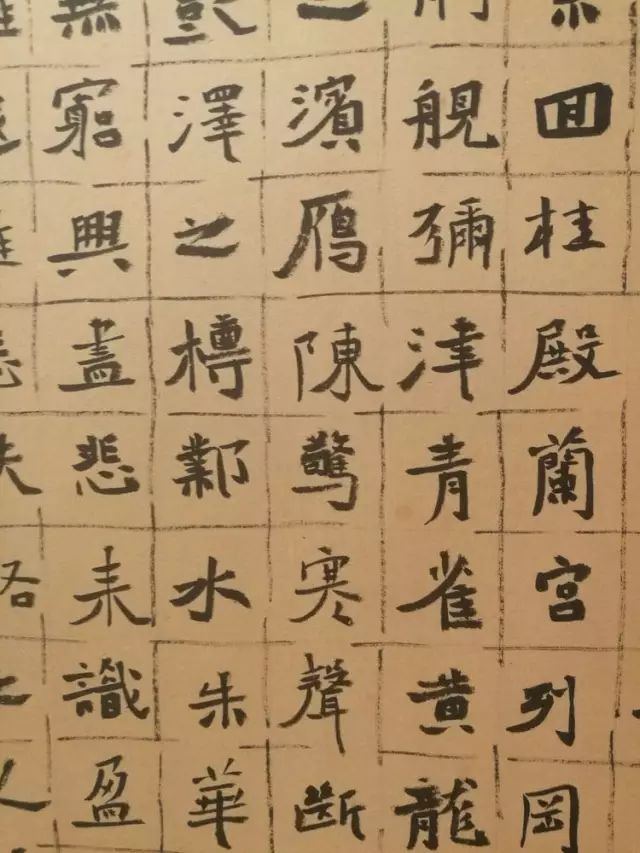 囬桂殿蘭宮列岡
舰彌津青雀黃龍
之濱鴈陳驚寒聲斷
澤之樽鄴水朱華
無窮興盡悲来識盈